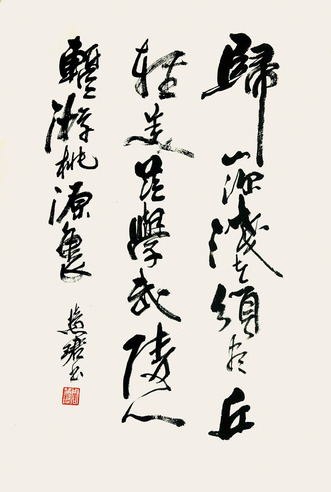 歸山深淺去須尽丘
壑美莫學武陵人
暫游桃源裏
慧珺书